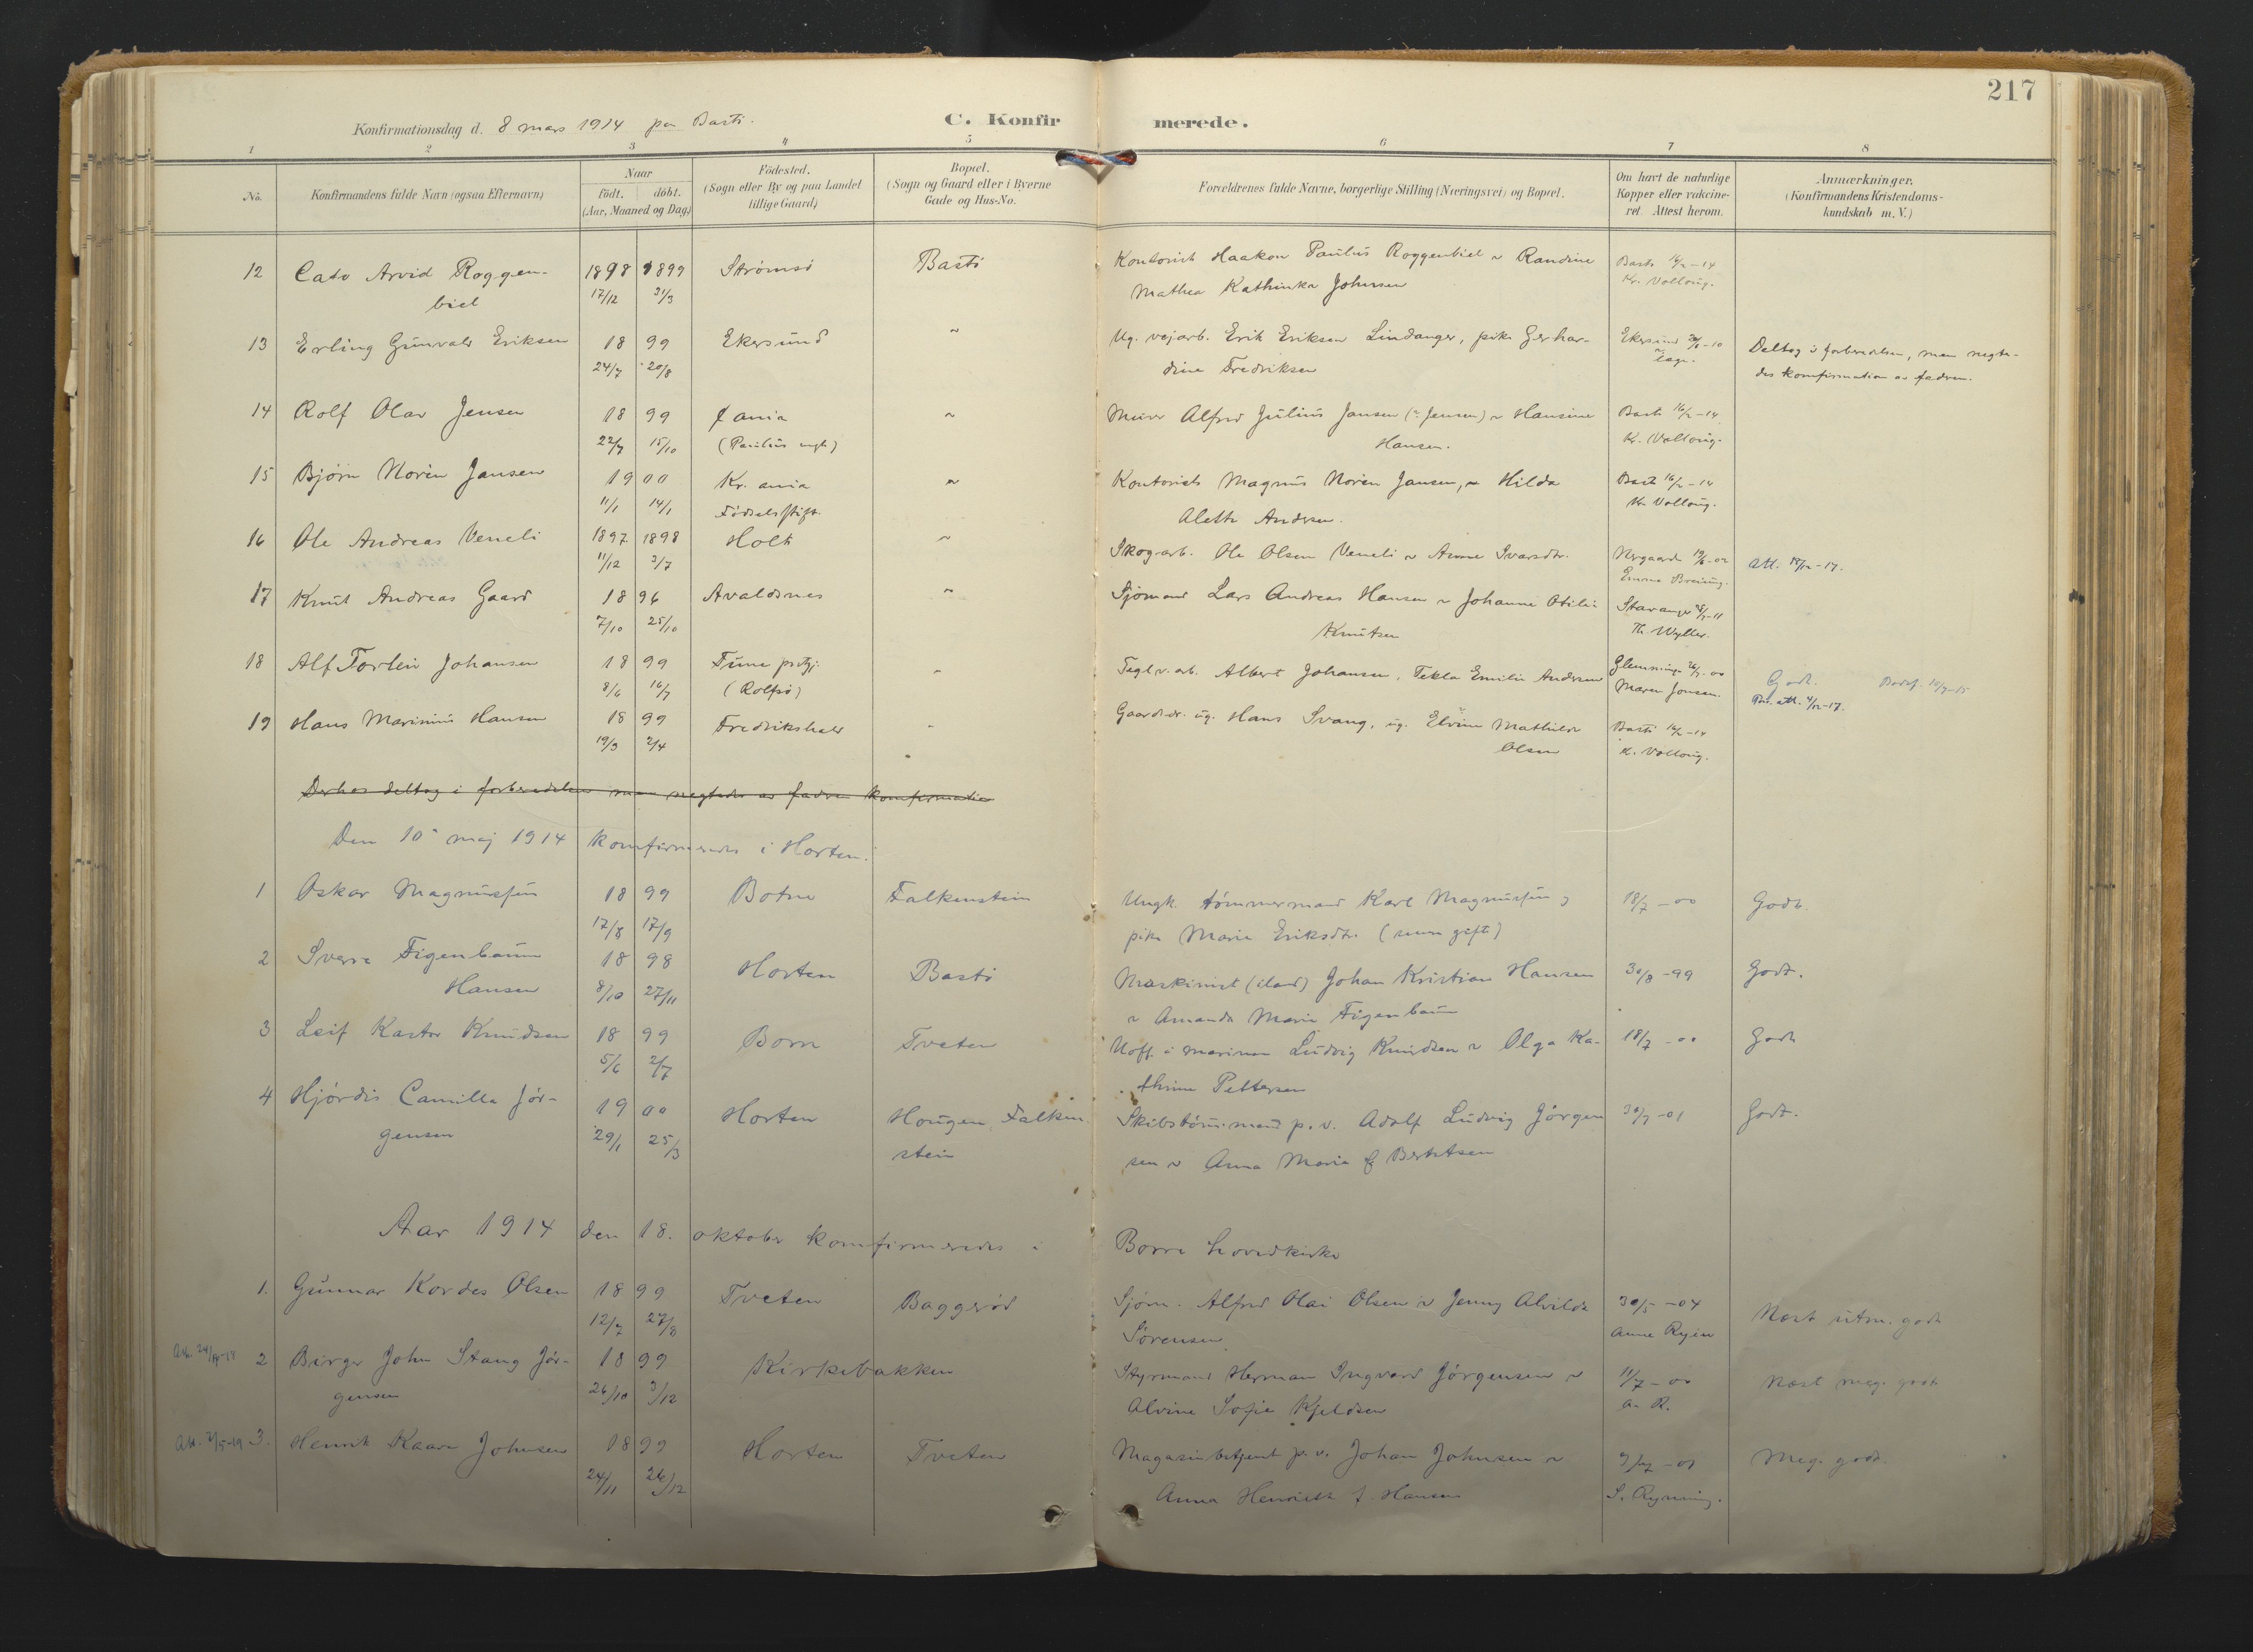 217
Konfirmationsdag d. 8 mars 1914 paa Bastö.
C. Konfirmerede.
1 2 3 4 5 6 7 8
No. Konfirmandens fulde Navn (ogsaa Efternavn) Naar födt. döbt. (Aar, Maaned og Dag) Födested. (Sogn eller By og paa Landet tillige Gaard) Bopæl. (Sogn og Gaard eller i Byerne Gade og Hus-No. Forældrenes fulde Navne, borgerlige Stilling (Næringsvei) og Bopæl. Om havt de naturlige Kopper eller vakcineret. Attest herom. Anmærkninger. (Konfirmandens Kristendomskundskab m. V.)
12 Cato Arvid Roggen- 1898 1899 Strömsö Bastö Kontorist Haakon Paulus Roggenbiel ~ Randine Bastö 16/2-14
biel 17/12 31/3 Mathea Kathinka Johnsen Kr. Vollaug.
13 Erling Gunvald Eriksen 18 99 Ekersund ~ Ug. vejarb. Erik Eriksen Lindanger, pike Gerhar- Ekersund -10 Deltog i forberedelsen, men negte-
24/7 20/8 dine Fredriksen Læge. des konfirmation av fadren.
14 Rolf Olav Jensen 18 99 ania ~ Murer Alfred Julius Jansen (: Jensen) ~ Hansine Bastö 16/2-14
22/7 15/10 (Paulus mgh) Hansen. Kr. Vollaug.
15 Bjørn Norén Jansen 19 00 Kr.ania ~ Kontorist Magnus Norén Jansen, ~ Hilda Bastö 16/2-14
11/1 14/1 Fødselsstift. Aleth Andersen. Kr. Vollaug.
16 Ole Andreas Veneli 1897 1898 Holt ~ Skogarb. Ole Olsen Veneli ~ Anne Ivarsdtr. 19/6-02 att. 18/12-17.
11/12 3/7 Emma
17 Knut Andreas Gaard 18 96 Avaldsnes ~ Sjømand Lars Andreas Hansen ~ Johanne Otilie Stavanger -11
7/10 25/10 Knutsen Th. Wyller.
18 Alf Torlein Johansen 18 99 Tune prstgj. ~ Teglv.arb. Albert Johansen, Tekla Emilie Andersen Glemminge 26/7.00 Godt.
8/6 16/7 (Rolfsö) Maren Jonsen. att. 4/12-17.
19 Hans Marinius Hansen 18 99 Fredrikshald - Gaardbr. ug. Hans Svang, ug. Elvine Mathilde Bastö 16/2-14
19/3 2/4 Olsen K. Vollaug.
Derhos deltog i forberedelsen men negtedes av fadren konfirmation
Den 10de maj 1914 konfirmeredes i Horten:
1 Oskar Magnussen 18 99 Botne Falkenstein Ungk. tømmermand Karl Magnussen og 18/7-00 Godt.
17/8 17/9 pike Marie Eriksdtr. (senere gift)
2 Sverre Figenbaum 18 98 Horten Bastö Maskinist (iland) Johan Kristian Hansen 30/8-99 Godt.
Hansen 8/10 27/11 ~ Amanda Marie Figenbaum
3 Leif Kastor Knudsen 18 99 Borre Tveten Uoff. i marinen Ludvig Knudsen ~ Olga Ka- 18/7-00 Godt
5/6 2/7 thrine Pettersen
4 Hjördis Camilla Jör- 19 00 Horten Haugen Falken Skibstömmermand p.v. Adolf Ludvig Jörgen 30/7-01 Godt.
gensen 29/1 25/3 stein sen ~ Anna Marie f Berntsen
Aar 1914 den 18. oktober konfirmeredes i Borre hovedkirke
1. Gunnar Kordes Olsen 18 99 Tveten Baggerød Sjøm. Alfred Olai Olsen ~ Jenny Alvilde 30/5-04 Næst utm. godt
12/7 27/8 Sørensen Anne Ryen
Att. 24/4-18 2 Birger John Stang Jör- 18 99 Kirkebakken Styrmand Herman Ingvard Jörgensen ~ 11/7-00 Næst meg. godt
gensen 26/10 3/12 Alvine Sofie Kjeldsen a. R.
Att. 2/5-19 3. Henrik Kaare Johnsen 18 99 Horten Tveten Magasinbetjent p.v. Johan Johnsen ~ 9/7-01 Meg. godt.
24/11 26/12 Anna Henriette f. Hansen S. Ryning.